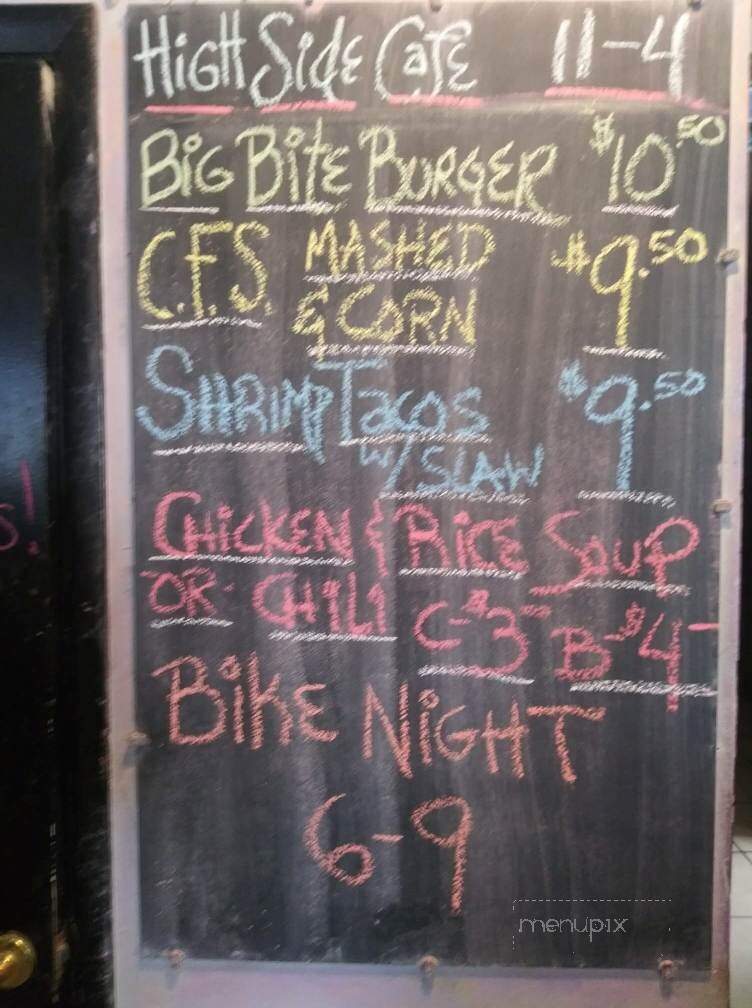 High Side Cafe 11-4
Big Bite Burger $10.50
C.F.S. Mashed $9.50
& Corn
Shrimp Tacos $9.50
w/ Slaw
Chicken & Rice Soup
or Chili C-$3.00 B-$4-
Bike Night
6-9
s!
menupix